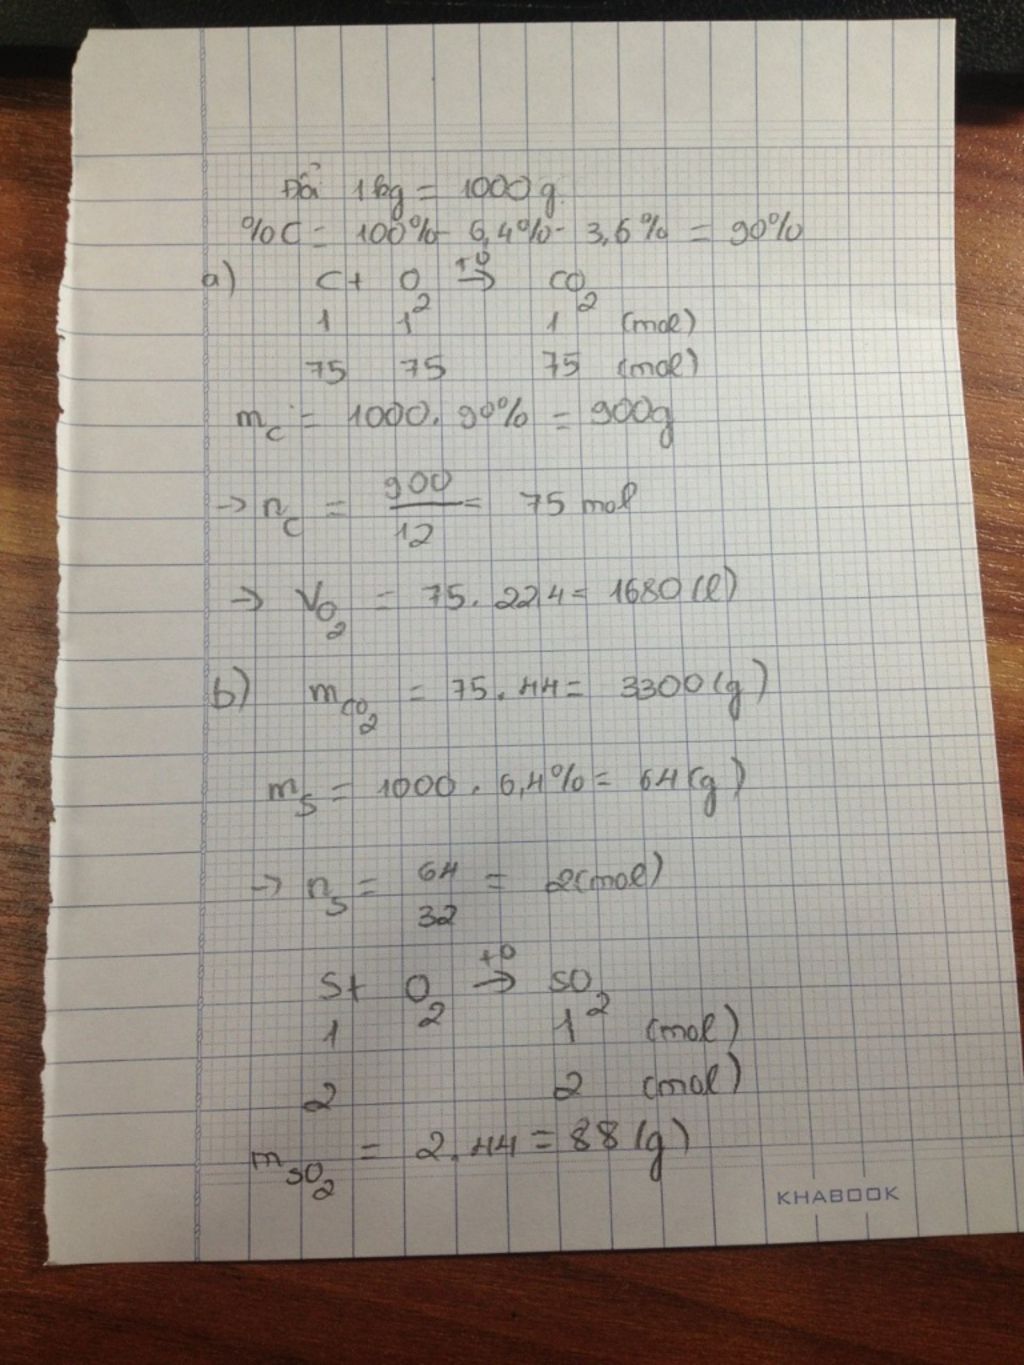 Đổi 1kg = 1000g
%C = 100% - 6,4% - 3,6% = 90%
a) C + O2 →(t0) CO2
1 1 1 (mol)
75 75 75 (mol)
mC = 1000. 90% = 900g
→ nC = 900/12 = 75 mol
→ VO2 = 75. 22,4 = 1680 (l)
b) mCO2 = 75. 44 = 3300 (g)
mS = 1000. 6,4% = 64 (g)
→ nS = 64/32 = 2 (mol)
S + O2 →(t0) SO2
1 1 (mol)
2 2 (mol)
mSO2 = 2.44 = 88 (g)
KHABOOK